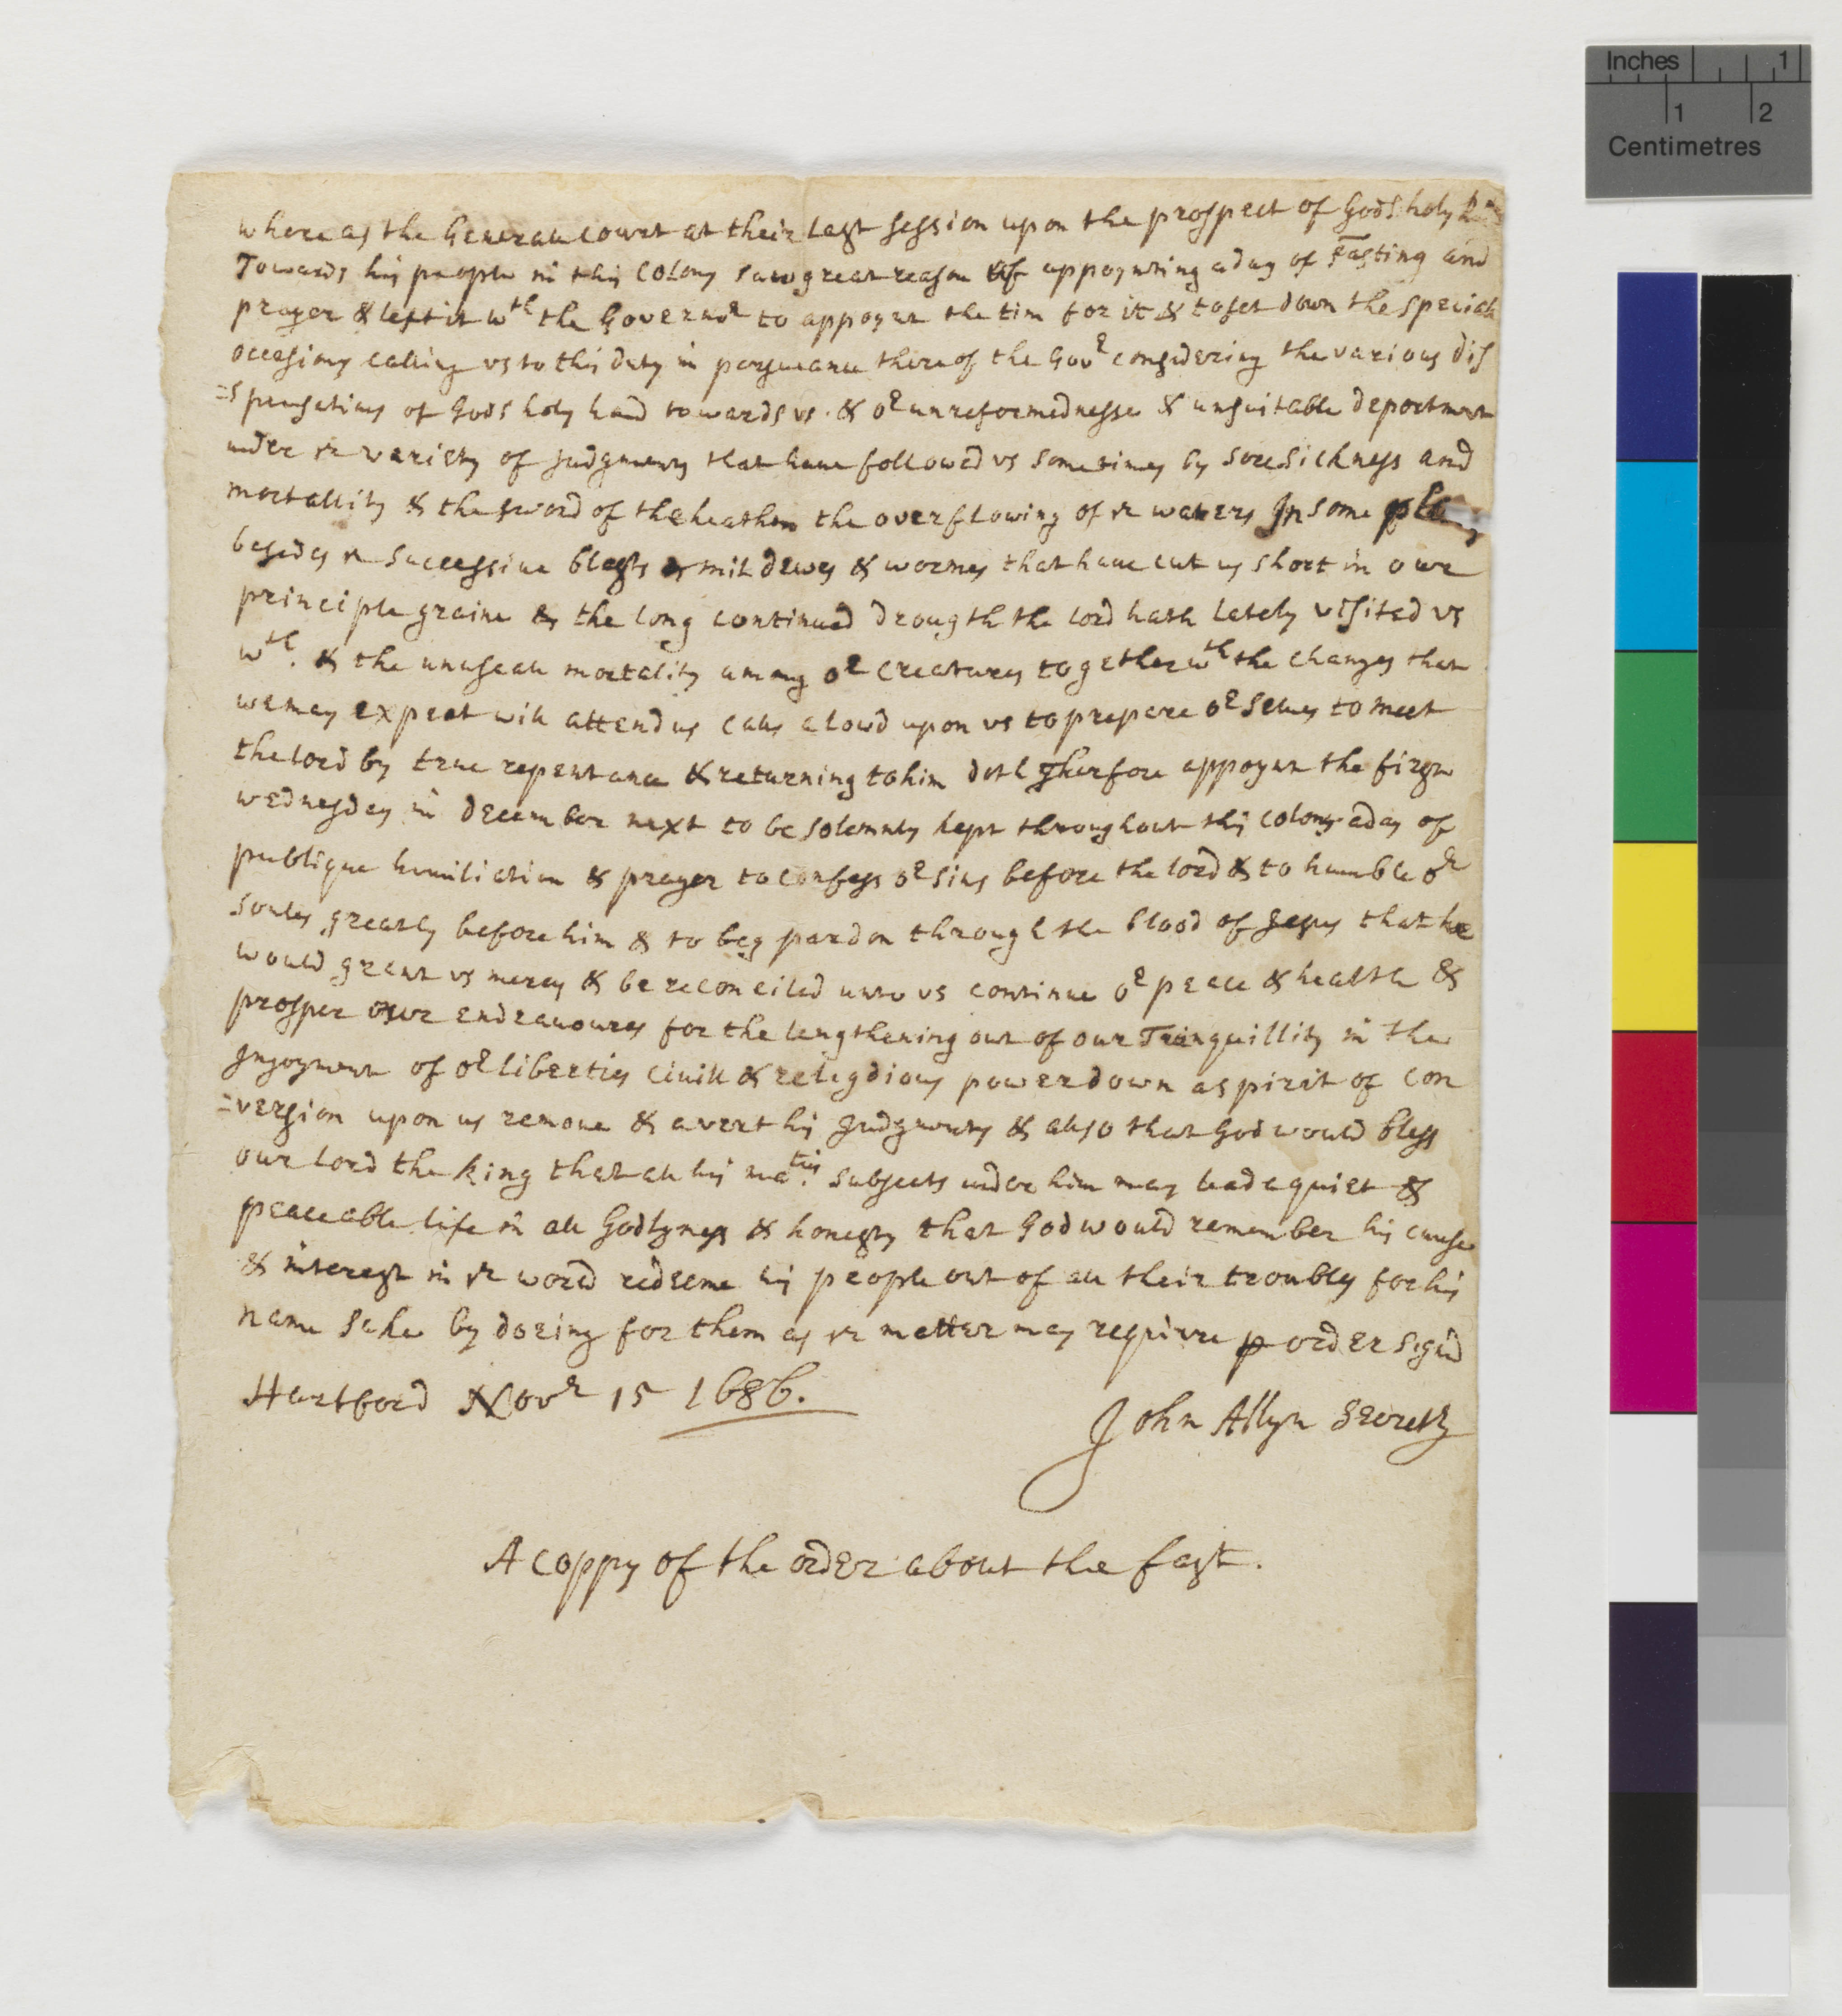 whereas the Generall Court at their last session upon the prospect of Gods holy
Towards his people in this Colony saw great reason of appoynting a day of Fasting and
prayer & left it wth the Governor to appoynt the tim for it & to set down the speciall
occasions calling vs to this duty in persueance thereof the Govr considering the various dis
=spensations of Gods holy hand towards vs. & or unreformednesse & unsuitable deportment
under ye variety of Judgments that haue followed vs sometimes by sore sickness and
mortallity & the sword of the heathen the overflowing of ye waters In some places
besides ye successiue blasts & mildewes & wormes that haue cut us short in our
principle graine & the long continued drougth the lord hath lately visited vs
wth. & the unuseall mortality among or creatures together wth the changes that
we may expect will attend us calls alowd upon vs to prepare or selues to meet
the lord by true repentance & returning to him doth Therfore appoynt the first
wednesday in december next to be solemnly kept throughout this colony a day of
publique humiliation & prayer to confess or sins before the lord & to humble or
soules greatly before him & to beg pardon through the blood of Jesus that he
would grant vs mercy & be reconciled unto vs continue or peace & health &
prosper our endeauoures for the lengthening out of our Tranquillity in the
Injoyment of or liberties ciuill & religdious power down a spirit of con
=version upon us remoue & avert his Judgments & allso that God would bless
our lord the king that all his matis. subjects under him may lead a quiet &
peaceable life in all Godlyness & honesty that God would remember his cause
& interest in ye world rideeme his people out of all their troubles for his
name sake by doeing for them as ye matter may requiere p order signd
Hartford Novr 15 1686.
John Allyn Secrety
A coppy of the order about the fast.